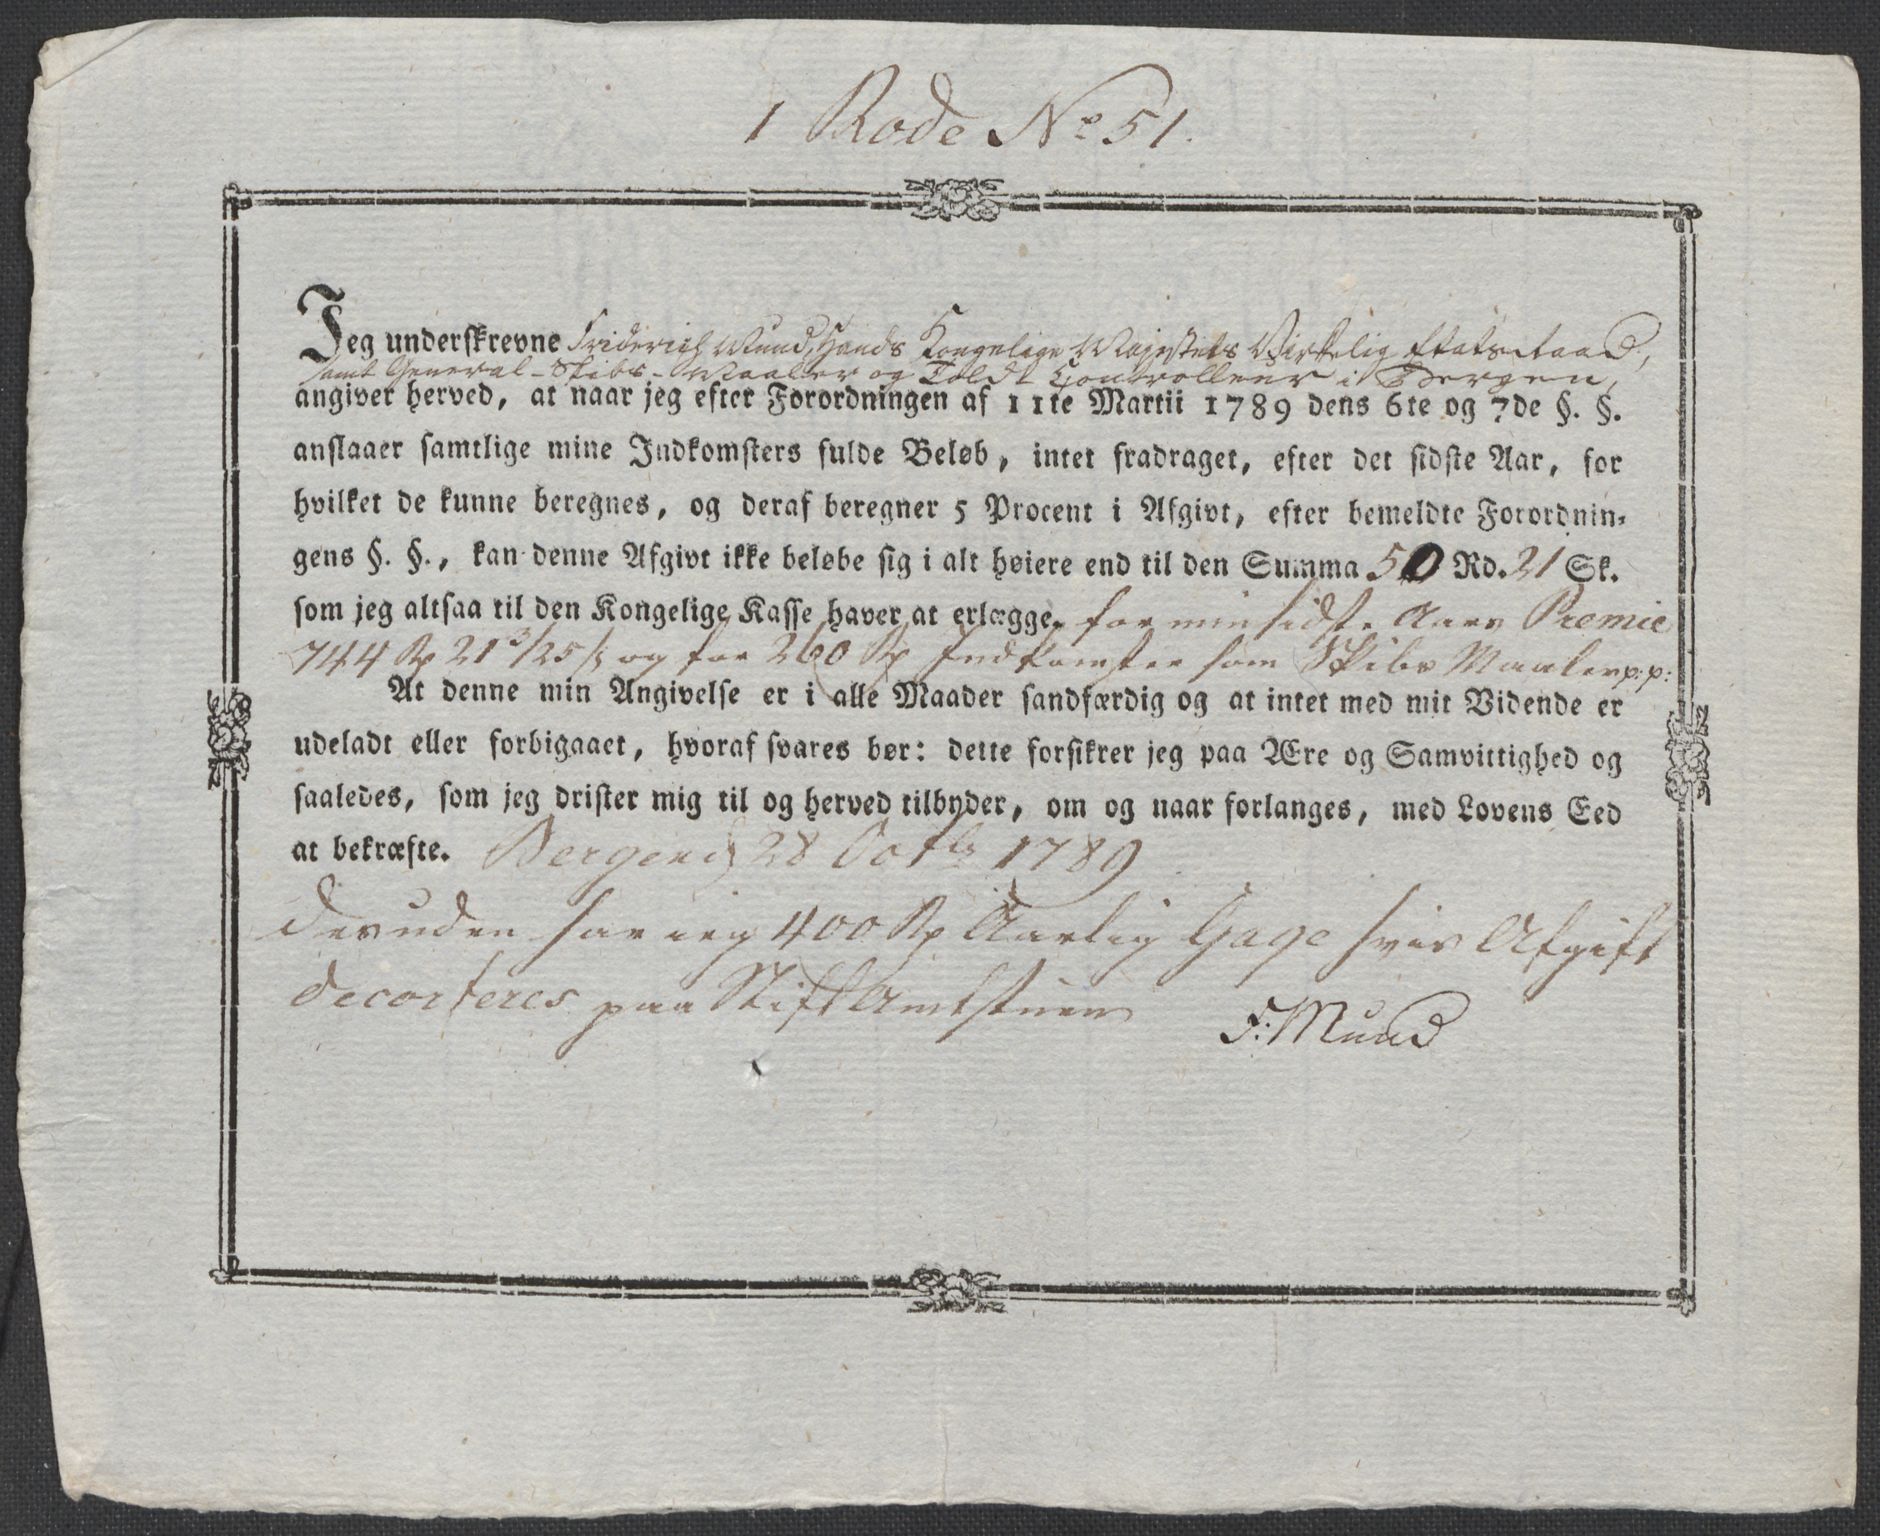 1 Rode No 51.
Jeg underskrevne Friderich Mund, Hands Kongelige Majestets Virkelig Etatsraad,
samt General-Skibs-Maaler og Told Controlleur i Bergen,
angiver herved, at naar jeg efter Forordningen af 11te Martii 1789 dens 6te og 7de §. §.
anslaaer samtlige mine Indkomsters fulde Beløb, intet fradraget, efter det sidste Aar, for
hvilket de kunne beregnes, og deraf beregner 5 Procent i Afgivt, efter bemeldte Forordnin-
gens §. §., kan denne Afgivt ikke beløbe sig i alt høiere end til den Summa 50 Rd. 21 Sk.
som jeg altsaa til den Kongelige Kasse haver at erlægge. for min sidste Aars Premie
744 Rd 21 3/25 s og for 260 Rd Indkomster som Skibs Maaler p: p:
At denne min Angivelse er i alle Maader sandfærdig og at intet med mit Vidende er
udeladt eller forbigaaet, hvoraf svares bør: dette forsikrer jeg paa Ære og Samvittighed og
saaledes, som jeg drister mig til og herved tilbyder, om og naar forlanges, med Lovens Eed
at bekræfte. Bergen d 28 Octb 1789
Desuden har ieg 400 Rd Aarlig Gage hvis Afgift
decorteres paa Stift Amtstuen
F: Mund